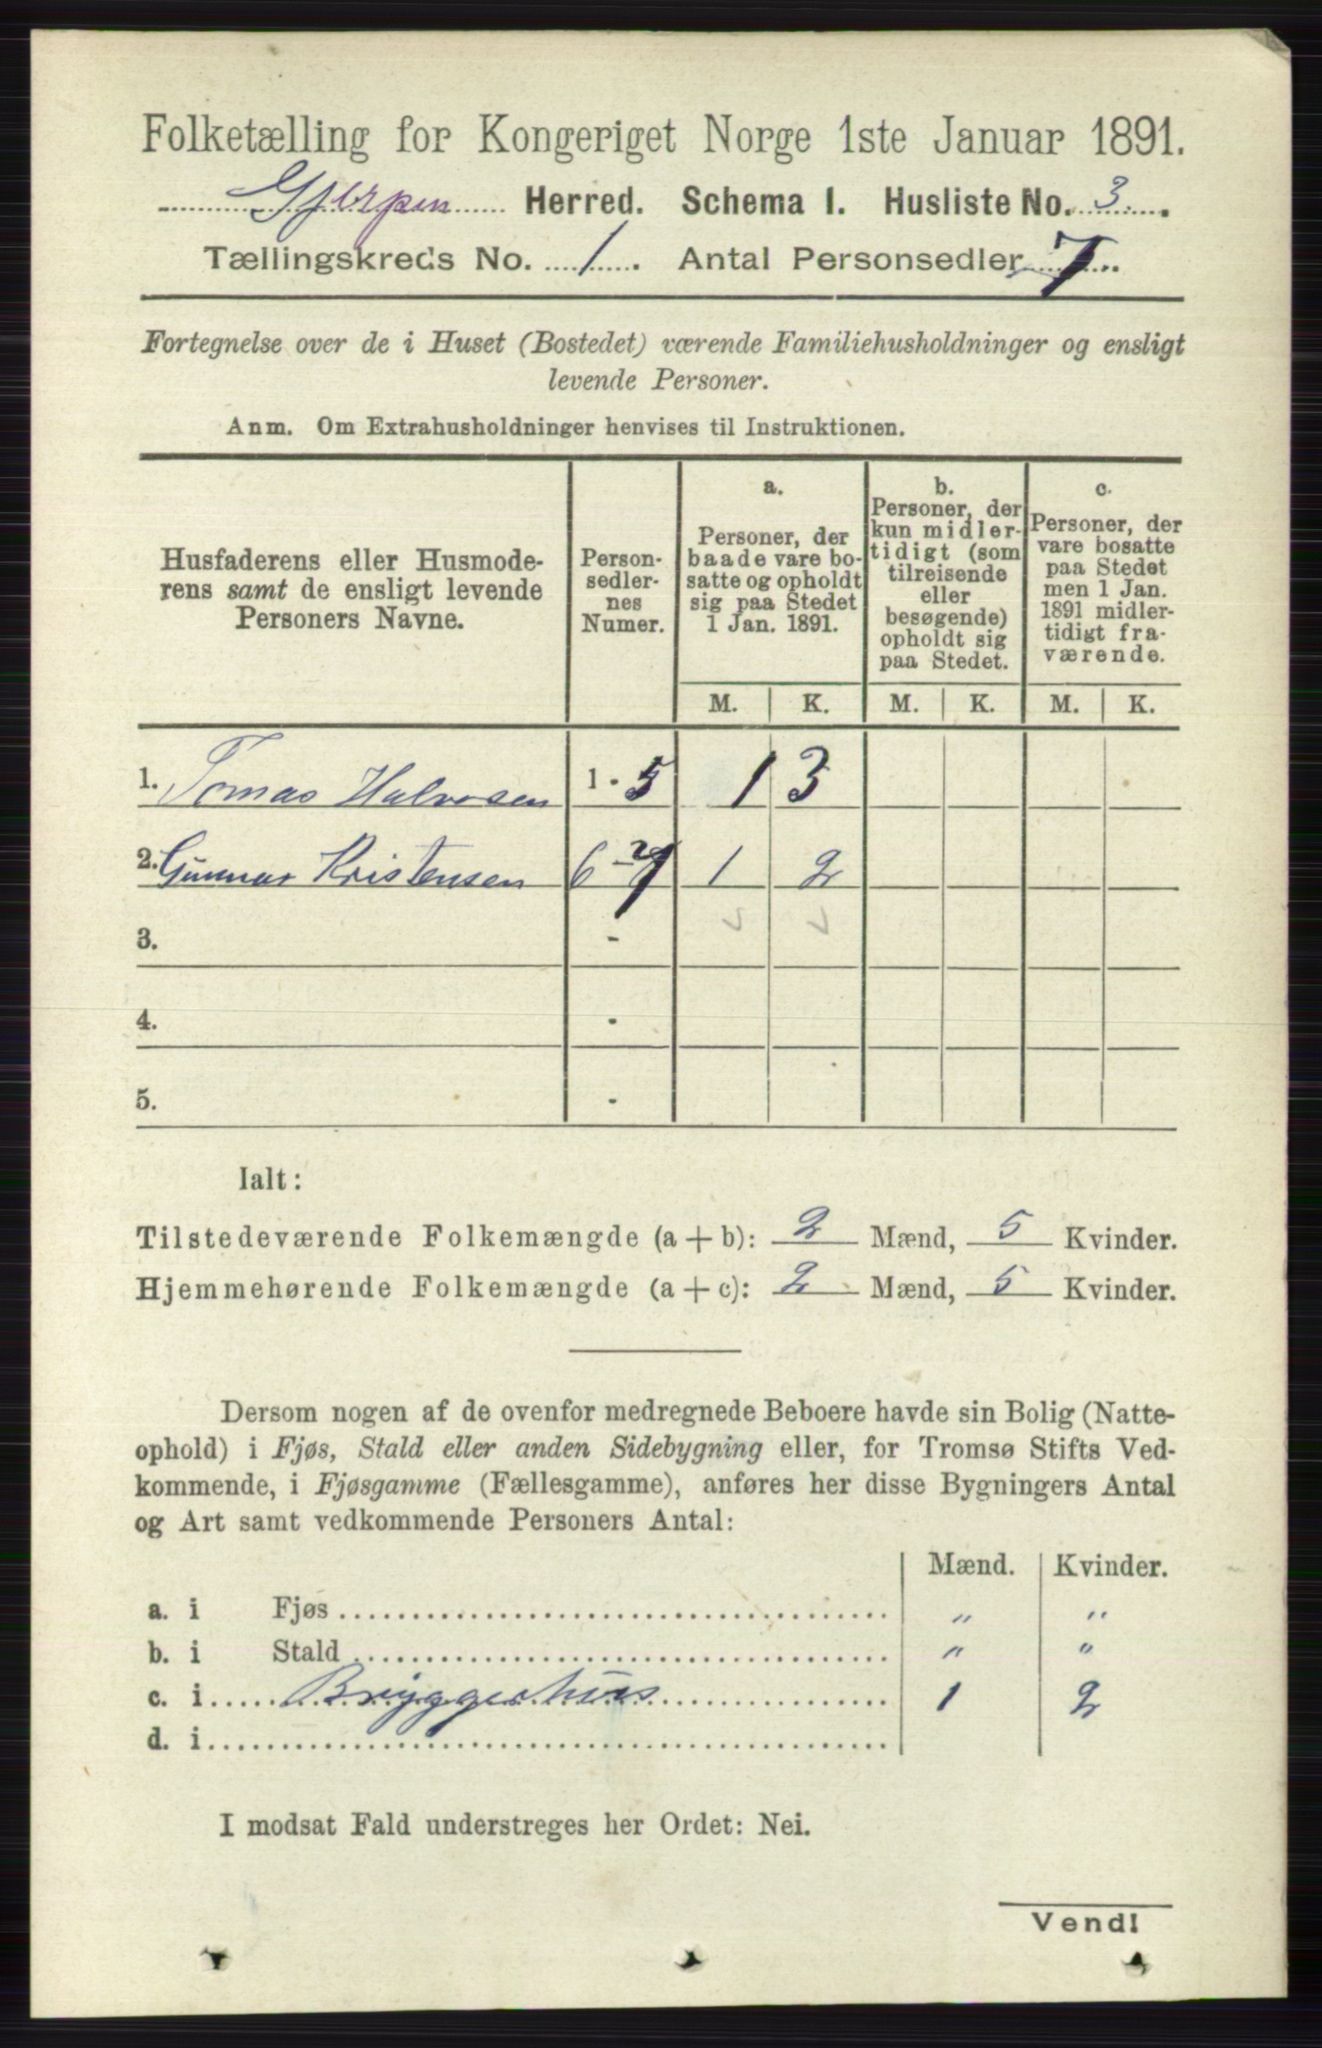 Folketælling for Kongeriget Norge 1ste Januar 1891.
Gjerpen Herred. Schema I. Husliste No. 3.
Tællingskreds No. 1. Antal Personsedler 7.
Fortegnelse over de i Huset (Bostedet) værende Familiehusholdninger og ensligt
levende Personer.
Anm. Om Extrahusholdninger henvises til Instruktionen.
Husfaderens eller Husmode-
rens samt de ensligt levende
Personers Navne.
Person-
sedler-
nes
Numer.
a.
Personer, der
baade vare bo-
satte og opholdt
sig paa Stedet
1 Jan. 1891.
b.
Personer, der
kun midler-
tidigt (som
tilreisende
eller
besøgende)
opholdt sig
paa Stedet.
c.
Personer, der
vare bosatte
paa Stedet
men 1 Jan.
1891 midler-
tidigt fra-
værende.
M. K. M. K. M. K.
1. Tomas Halvosen 1 - 5 1 3
2. Gunnar Kristensen 6 - 7 1 2
3. -
4. -
5. -
Ialt:
Tilstedeværende Folkemængde (a + b): 2 Mænd, 5 Kvinder.
Hjemmehørende Folkemængde (a + c): 2 Mænd, 5 Kvinder.
Dersom nogen af de ovenfor medregnede Beboere havde sin Bolig (Natte-
ophold) i Fjøs, Stald eller anden Sidebygning eller, for Tromsø Stifts Ved-
kommende, i Fjøsgamme (Fællesgamme), anføres her disse Bygningers Antal
og Art samt vedkommende Personers Antal:
Mænd. Kvinder.
a. i Fjøs " "
b. i Stald " "
c. i Bryggerhus 1 2
d. i
I modsat Fald understreges her Ordet: Nei.
Vend!